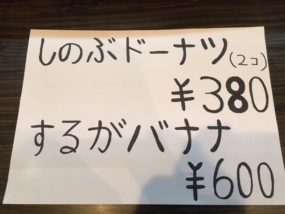 しのぶドーナツ(2コ)
¥380
するがバナナ
¥600